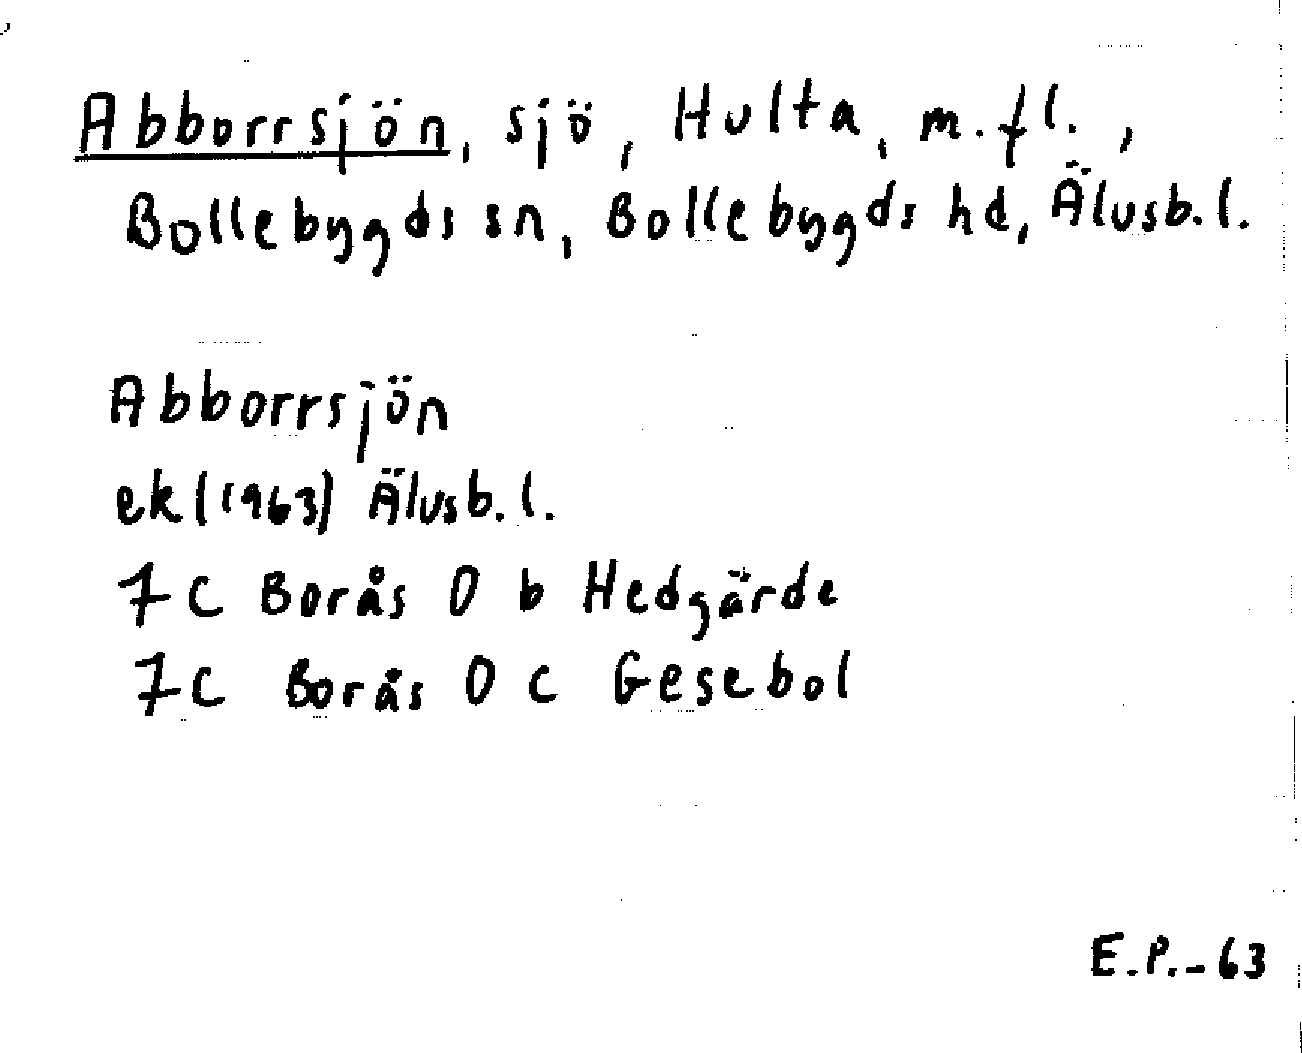 Abborrsjön, sjö, Hulta, m.fl.,
Bollebygds sn, Bollebygds hd, Älvsb.l.
Abborrsjön
ek(1963) Älvsb.l.
7C Borås 0 b Hedgärde
7C Borås 0 c Gesebol
E.P.-63